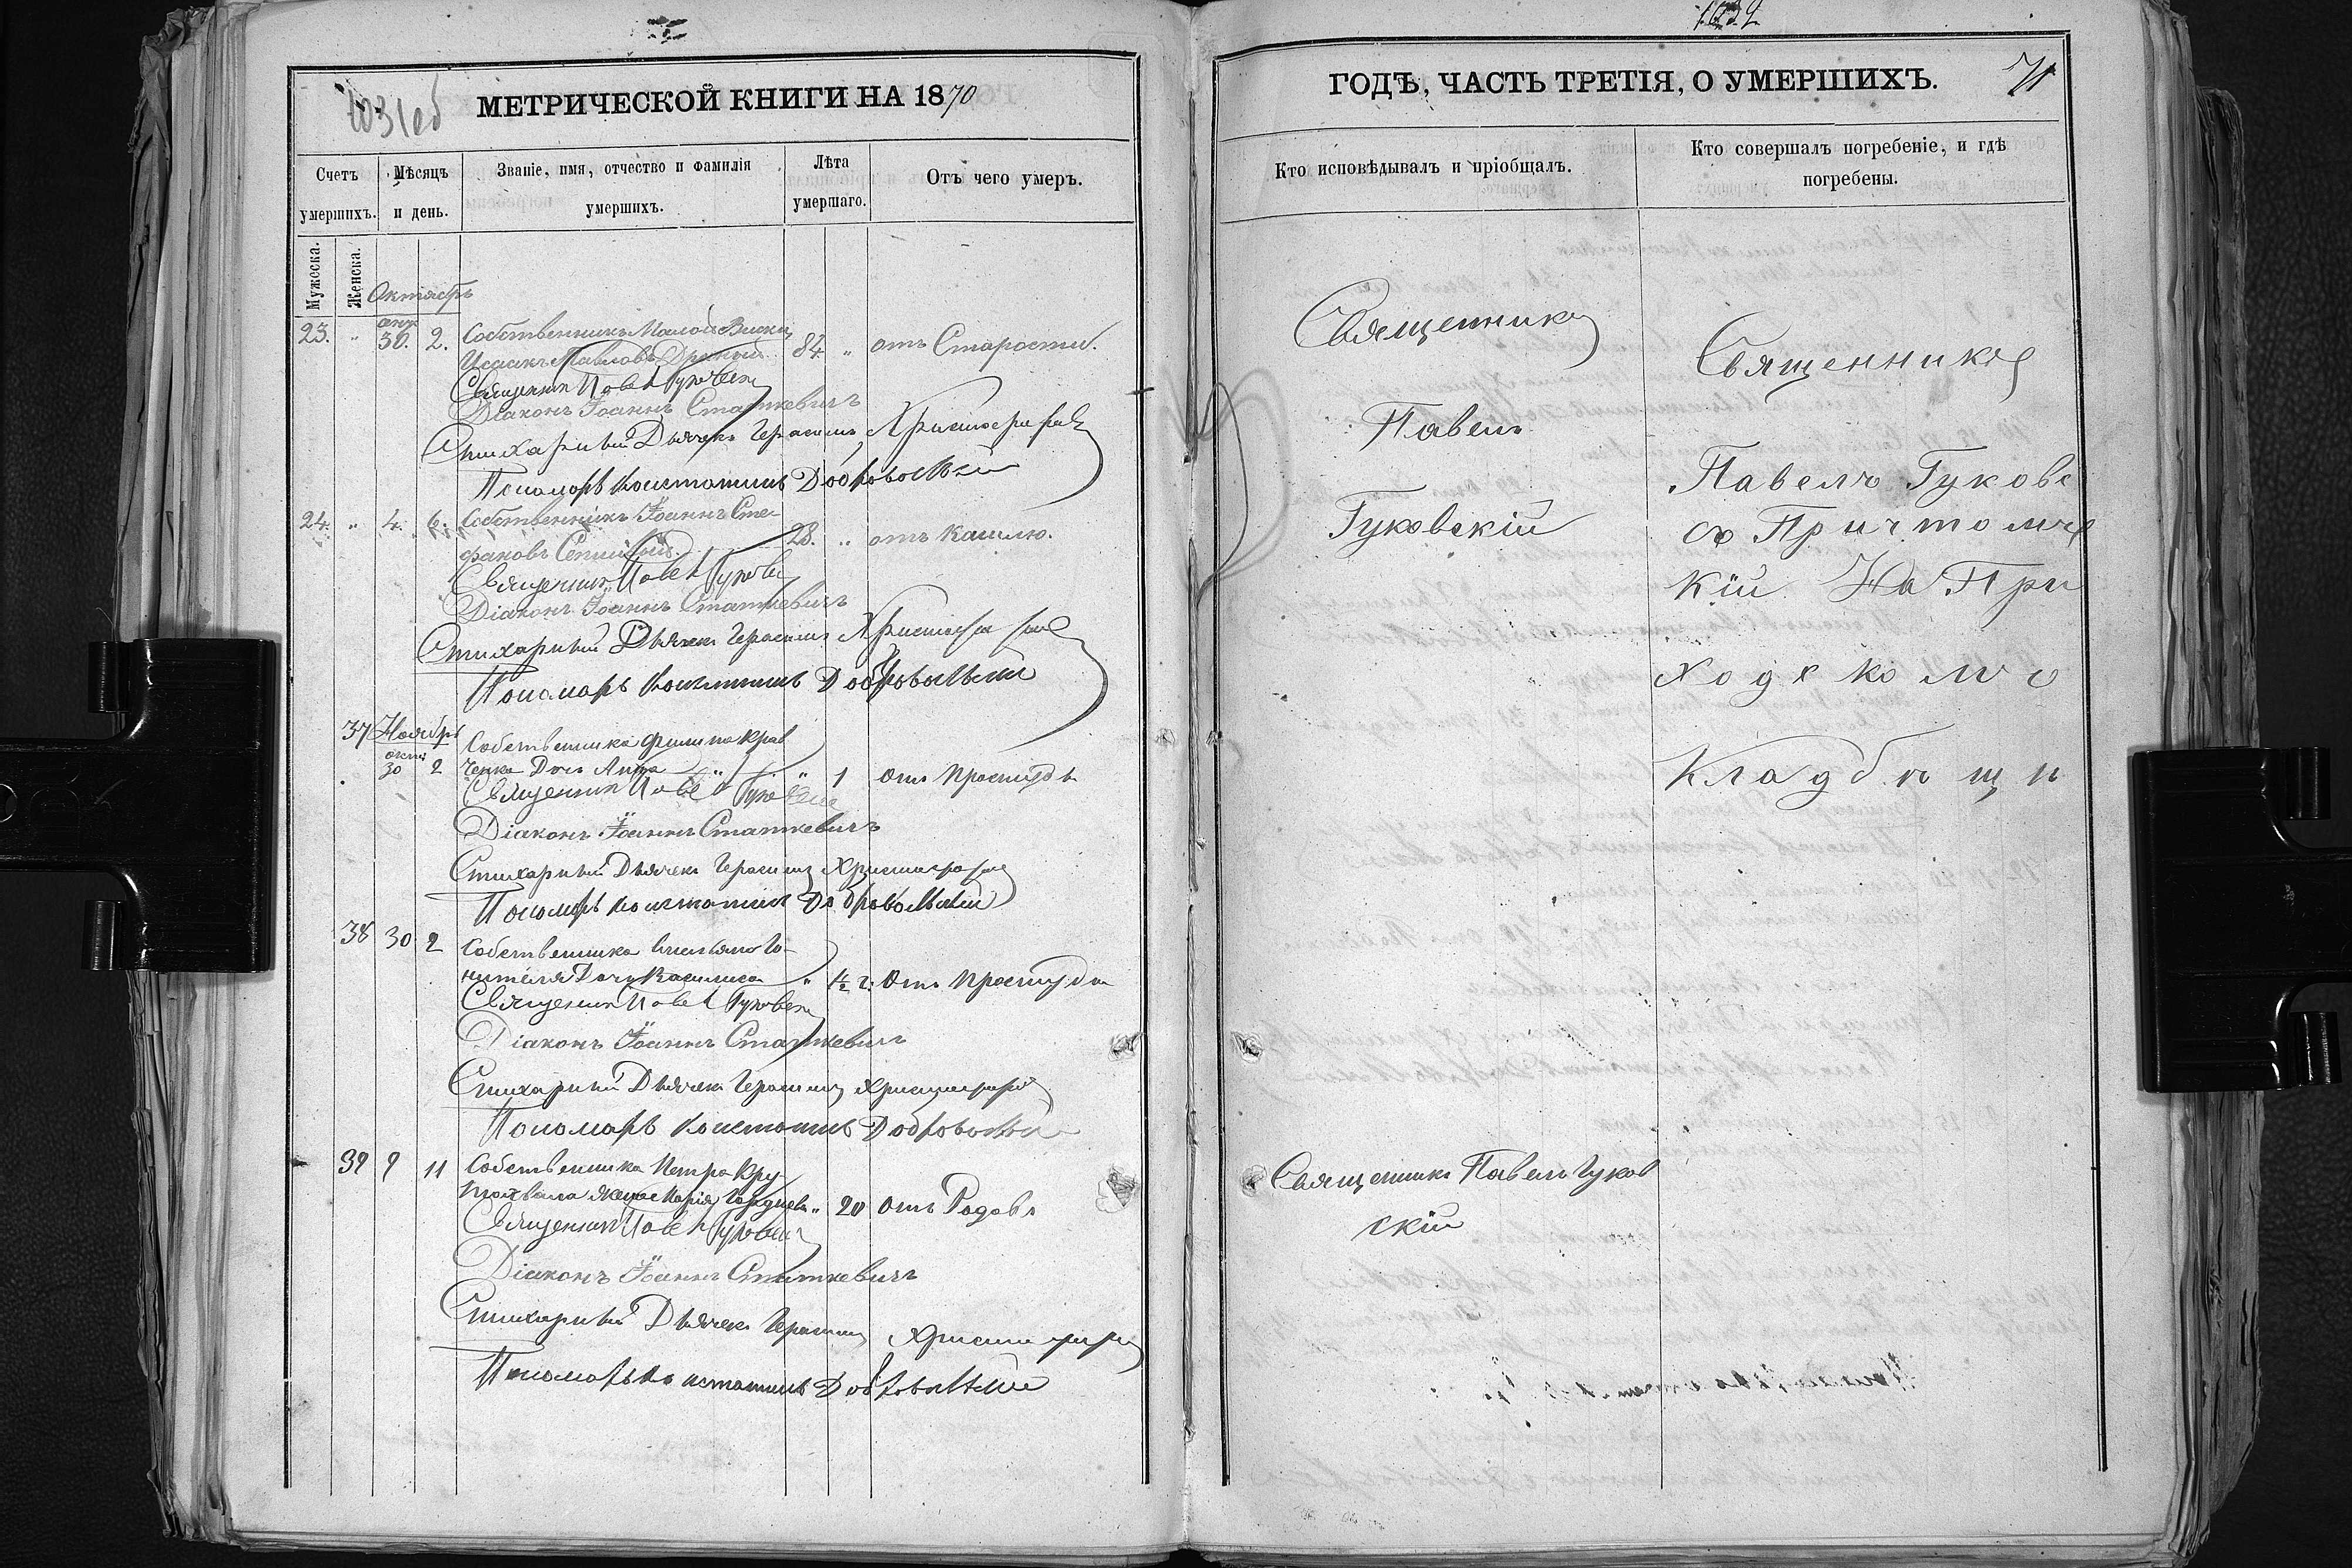 МЕТРИЧЕСКОЙ КНИГИ НА 1870
Счетъ умершихъ.
Мѣсяцъ и день.
Званіе, имя, отчество и фамилія умершихъ.
Лѣта умершаго.
Отъ чего умеръ.
Мужеска.
Женска.
Октябрь
23. " 30. 2. Собственникъ Малой Виски
Исаакъ Павловъ 84. " отъ Старости.
Священникъ Павелъ Гуковскій
Діаконъ Іоаннъ Статкевичъ
Стихарный Дьячекъ Герасимъ Христофоров
Пономарь Константинъ Добровольскій
24. " 4. 6. Собственникъ Іоаннъ Сте-
фановъ 28. " отъ Кашлю.
Священникъ Павелъ Гуковскій
Діаконъ Іоаннъ Статкевичъ
Стихарный Дьячекъ Герасимъ Христофоров
Пономарь Константинъ Добровольскій
37 Ноябрь
окт 30 2 Собственника Филипа Крав
ченка Дочь Анна " 1 Отъ Простуды
Священникъ Павелъ Гуковскій
Діаконъ Іоаннъ Статкевичъ
Стихарный Дьячекъ Герасимъ Христофоров
Пономарь Константинъ Добровольскій
38 30 2 Собственника Го-
нителя Дочь Василиса " ½ г. Отъ Простуды
Священникъ Павелъ Гуковскій
Діаконъ Іоаннъ Статкевичъ
Стихарный Дьячекъ Герасимъ Христофоров
Пономарь Константинъ Добровольскій
39 9 11 Собственника Петра Кру
жена Марія " 20 Отъ Родовъ
Священникъ Павелъ Гуковскій
Діаконъ Іоаннъ Статкевичъ
Стихарный Дьячекъ Герасимъ Христофоров
Пономарь Константинъ Добровольскій
ГОДѢ, ЧАСТЬ ТРЕТІЯ, О УМЕРШИХЪ.
71
Кто исповѣдывалъ и пріобщалъ.
Кто совершалъ погребеніе, и гдѣ погребены.
Священникъ
Павелъ
Гуковскій
Священникъ Павелъ Гуков
скій
Священникъ
Павелъ Гуковс
съ Причтомъ
кій На При
ходскомъ
Кладбищи